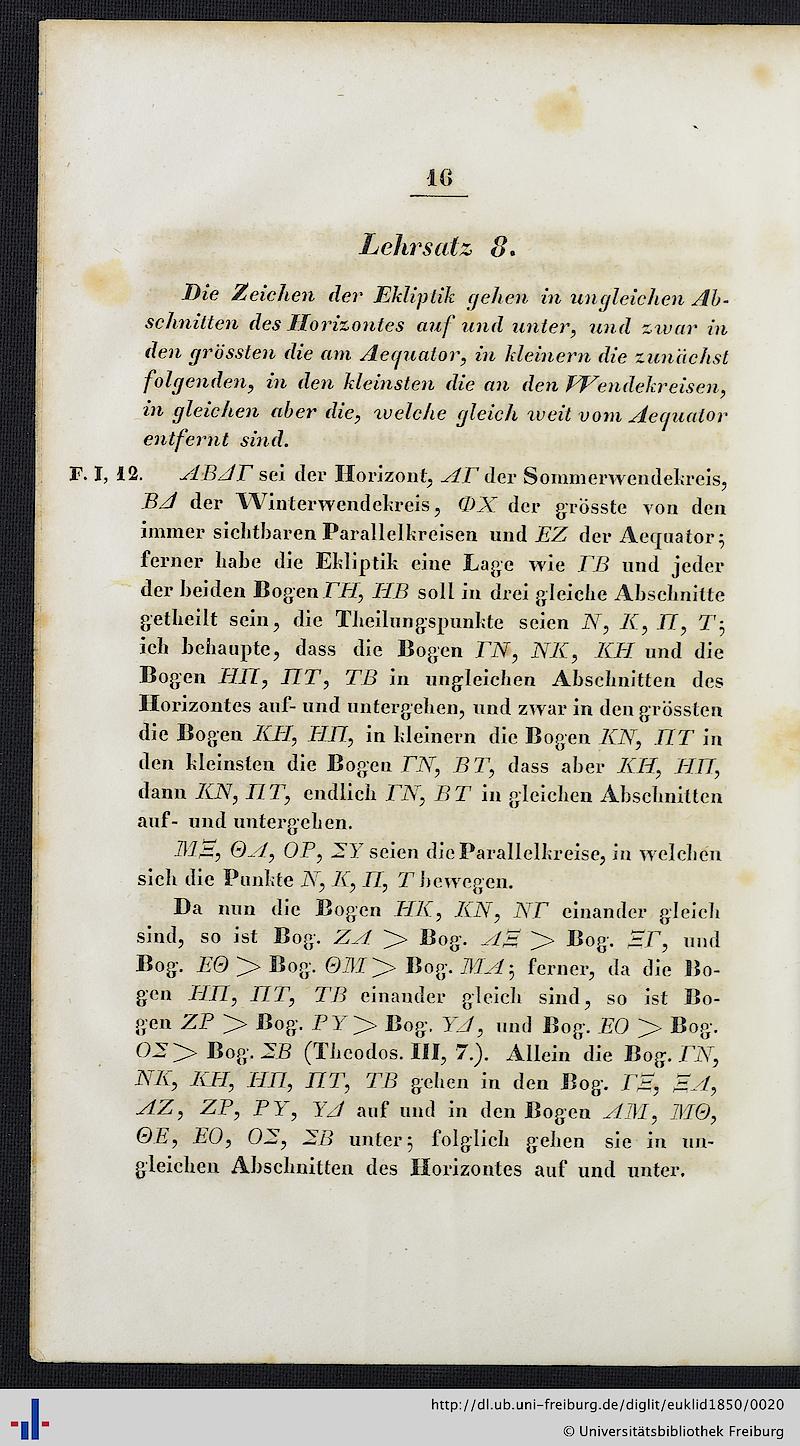 16
Lehrsatz 8.
Die Zeichen der Ekliptik gehen in ungleichen Ab-
schnitten des Horizontes auf und unter, und zwar in
den grössten die am Aequator, in kleinern die zunächst
folgenden, in den kleinsten die an den Wendekreisen,
in gleichen aber die, welche gleich weit vom Aequator
entfernt sind.
F. I, 12. ΑΒΔΓ sei der Horizont, ΑΓ der Sommerwendekreis,
ΒΔ der Winterwendekreis, ΦΧ der grösste von den
immer sichtbaren Parallelkreisen und ΕΖ der Aequator;
ferner habe die Ekliptik eine Lage wie ΓΒ und jeder
der beiden Bogen ΓΗ, ΗΒ soll in drei gleiche Abschnitte
getheilt sein, die Theilungspunkte seien Ν, Κ, Π, Τ;
ich behaupte, dass die Bogen ΓΝ, ΝΚ, ΚΗ und die
Bogen ΗΠ, ΠΤ, ΤΒ in ungleichen Abschnitten des
Horizontes auf- und untergehen, und zwar in den grössten
die Bogen ΚΗ, ΗΠ, in kleinern die Bogen ΚΝ, ΠΤ in
den kleinsten die Bogen ΓΝ, ΒΤ, dass aber ΚΗ, ΗΠ,
dann ΚΝ, ΠΤ, endlich ΓΝ, ΒΤ in gleichen Abschnitten
auf- und untergehen.
ΜΞ, ΘΛ, ΟΡ, ΣΥ seien die Parallelkreise, in welchen
sich die Punkte Ν, Κ, Π, Τ bewegen.
Da nun die Bogen ΗΚ, ΚΝ, ΝΓ einander gleich
sind, so ist Bog. ΖΛ > Bog. ΛΞ > Bog. ΞΓ, und
Bog. ΕΘ > Bog. ΘΜ > Bog. ΜΑ; ferner, da die Bo-
gen ΗΠ, ΠΤ, ΤΒ einander gleich sind, so ist Bo-
gen ΖΡ > Bog. ΡΥ > Bog. ΥΔ, und Bog. ΕΟ > Bog.
ΟΣ > Bog. ΣΒ (Theodos. III, 7.). Allein die Bog. ΓΝ,
ΝΚ, ΚΗ, ΗΠ, ΠΤ, ΤΒ gehen in den Bog. ΓΞ, ΞΛ,
ΛΖ, ΖΡ, ΡΥ, ΥΔ auf und in den Bogen ΑΜ, ΜΘ,
ΘΕ, ΕΟ, ΟΣ, ΣΒ unter; folglich gehen sie in un-
gleichen Abschnitten des Horizontes auf und unter.
http://dl.ub.uni-freiburg.de/diglit/euklid1850/0020
© Universitätsbibliothek Freiburg